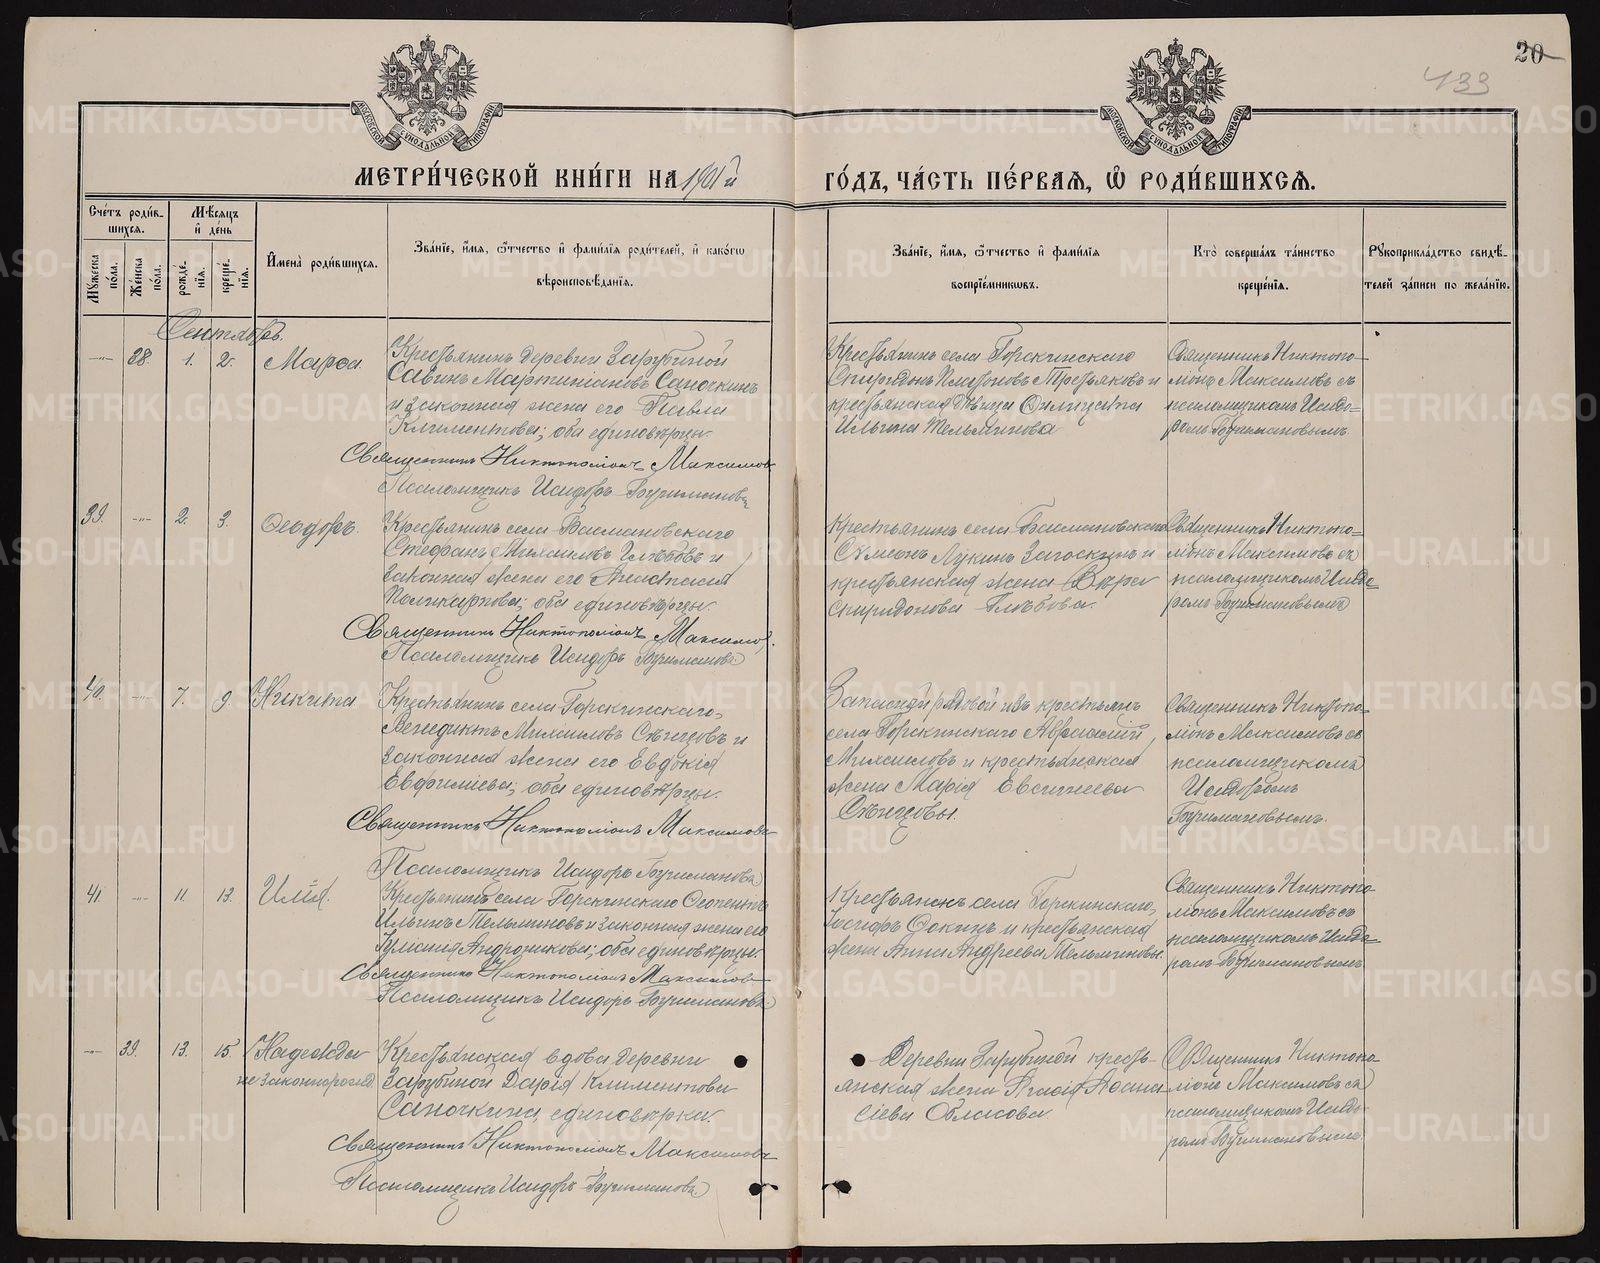 20
433
МОСКОВСКОЙ СѴНОДАЛЬНОЙ ТИПОГРАФІИ
МОСКОВСКОЙ СѴНОДАЛЬНОЙ ТИПОГРАФІИ
МЕТРИ́ЧЕСКОЙ КНИ́ГИ НА 1901й ГО́ДЪ, ЧА́СТЬ ПЕ́РВАЯ, Ѽ РОДИ́ВШИХСЯ.
Сче́тъ роди́в-
шихся.
Мѣ́сяцъ
и҆ де́нь
Мꙋ́жеска
по́ла.
Же́нска
по́ла.
рожде́-
нїя.
креще́-
нїя.
И҆мена̀ роди́вшихся.
Зва́нїе, и҆́мя, ѻ҆́тчество и҆ фами́лїя роди́телей, и҆ како́гѡ
вѣроисповѣ́данїя.
Зва́нїе, и҆́мя, ѻ҆́тчество и҆ фами́лїя
воспрїе́мникѡвъ.
Кто̀ соверша́лъ та́инство
креще́нїя.
Рꙋкоприкла́дство свидѣ́-
телей за́писи по жела́нїю.
Сентябрь.
—"— 38. 1. 2. Марѳа.
Крестьянинъ деревни Зарубиной
Савинъ Мартиніановъ Саночкинъ
и законная жена его Павла
Климентова; оба единовѣрцы.
Священникъ Никтополіонъ Максимовъ
Псаломщикъ Исидоръ Бузимановъ
Крестьянинъ села Горскинскаго
Спиридонъ Платоновъ Третьяковъ и
крестьянская дѣвица
Ильина Тельминова
Священникъ Никтопо-
ліонъ Максимовъ съ
псаломщикомъ Исидо-
ромъ Бузимановымъ
39. —"— 2. 3. Ѳеодоръ.
Крестьянинъ села Басмановскаго
Стефанъ Михаиловъ Глѣбовъ и
законная жена его Анастасія
Поликарпова; оба единовѣрцы.
Священникъ Никтополіонъ Максимовъ
Псаломщикъ Исидоръ Бузимановъ
Крестьянинъ села Басмановскаго
Сѵмеонъ Лукинъ Загоскинъ и
крестьянская жена Вѣра
Спиридонова Глѣбова.
Священникъ Никтопо-
ліонъ Максимовъ съ
псаломщикомъ Исидо-
ромъ Бузимановымъ
40. —"— 7. 9. Никита
Крестьянинъ села Горскинскаго,
Венедиктъ Михаиловъ Сѣнцовъ и
законная жена его Евдокія
Евфиміева; оба единовѣрцы.
Священникъ Никтополіонъ Максимовъ
Псаломщикъ Исидоръ Бузимановъ
Запасной рядовой изъ крестьянъ
села Горскинскаго Авраамій
Михаиловъ и крестьянская
жена Марія Евгениева
Сѣнцовы.
Священникъ Никтопо-
ліонъ Максимовъ съ
псаломщикомъ
Исидоромъ
Бузимановымъ.
41. —"— 11. 13. Илія.
Крестьянинъ села Горскинскаго Ѳеопентъ
Ильинъ Тельминовъ и законная жена его
Іуліанія Андроникова; оба единовѣрцы.
Священникъ Никтополіонъ Максимовъ
Псаломщикъ Исидоръ Бузимановъ
Крестьянинъ села Горскинскаго,
Іосифъ Ѳокинъ и крестьянская
жена Анна Андреева Тельминовы.
Священникъ Никтопо-
ліонъ Максимовъ съ
псаломщикомъ Исидо-
ромъ Бузимановымъ
—"— 39. 13. 15. Надежда
незаконнорожд.
Крестьянская вдова деревни
Зарубиной Дарія Климентова
Саночкина, единовѣрка.
Священникъ Никтополіонъ Максимовъ
Псаломщикъ Исидоръ Бузимановъ
Деревни Зарубиной кресть-
янская жена Агаѳія Аѳана-
сіева Обласова
Священникъ Никтопо-
ліонъ Максимовъ съ
псаломщикомъ Исидо-
ромъ Бузимановымъ.
METRIKI.GASO-URAL.RU